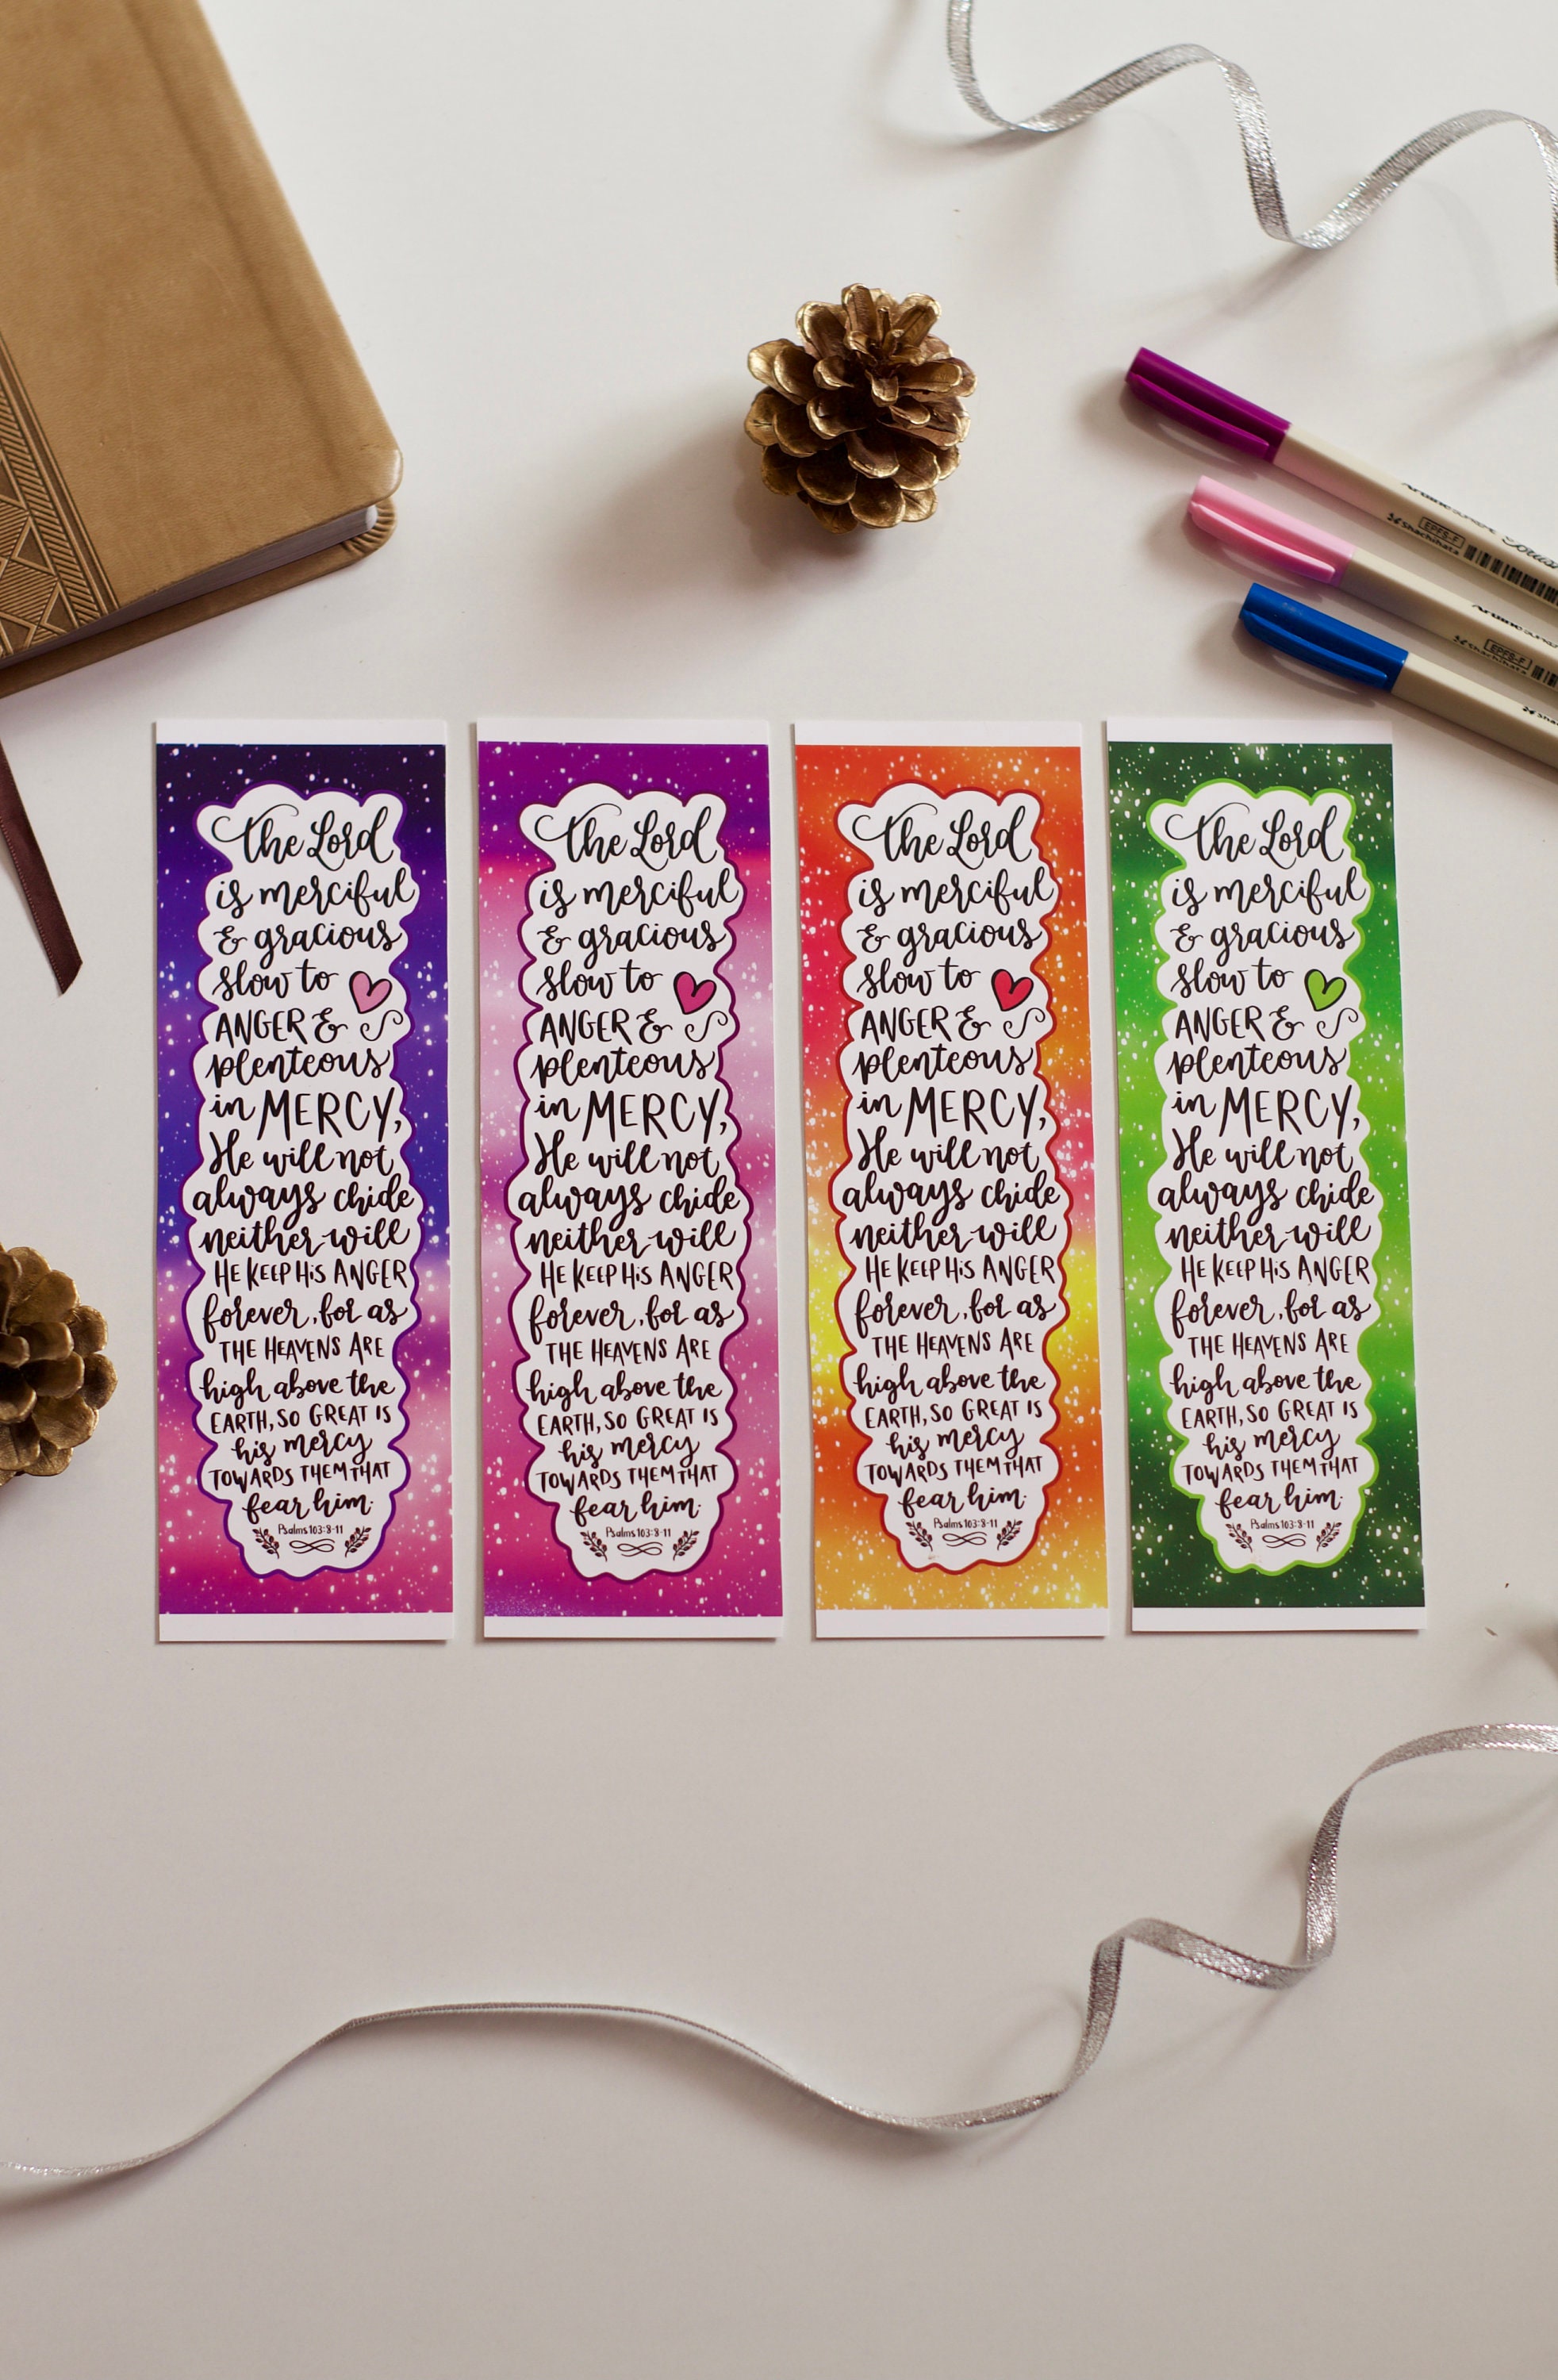 Artline
EPFS-F
Shachihata
EPFS-F
Shachihata
The Lord
is merciful
& gracious
slow to
ANGER &
plenteous
in MERCY,
He will not
always chide
neither will
HE KEEP HiS ANGER
forever, for as
THE HEAVENS ARE
high above the
EARTH, SO GREAT IS
his mercy
TOWARDS THEM THAT
fear him.
Psalms 103:8-11
The Lord
is merciful
& gracious
slow to
ANGER &
plenteous
in MERCY,
He will not
always chide
neither will
HE KEEP HiS ANGER
forever, for as
THE HEAVENS ARE
high above the
EARTH, SO GREAT IS
his mercy
TOWARDS THEM THAT
fear him.
Psalms 103:8-11
The Lord
is merciful
& gracious
slow to
ANGER &
plenteous
in MERCY,
He will not
always chide
neither will
HE KEEP HiS ANGER
forever, for as
THE HEAVENS ARE
high above the
EARTH, SO GREAT IS
his mercy
TOWARDS THEM THAT
fear him.
Psalms 103:8-11
The Lord
is merciful
& gracious
slow to
ANGER &
plenteous
in MERCY,
He will not
always chide
neither will
HE KEEP HiS ANGER
forever, for as
THE HEAVENS ARE
high above the
EARTH, SO GREAT IS
his mercy
TOWARDS THEM THAT
fear him.
Psalms 103:8-11